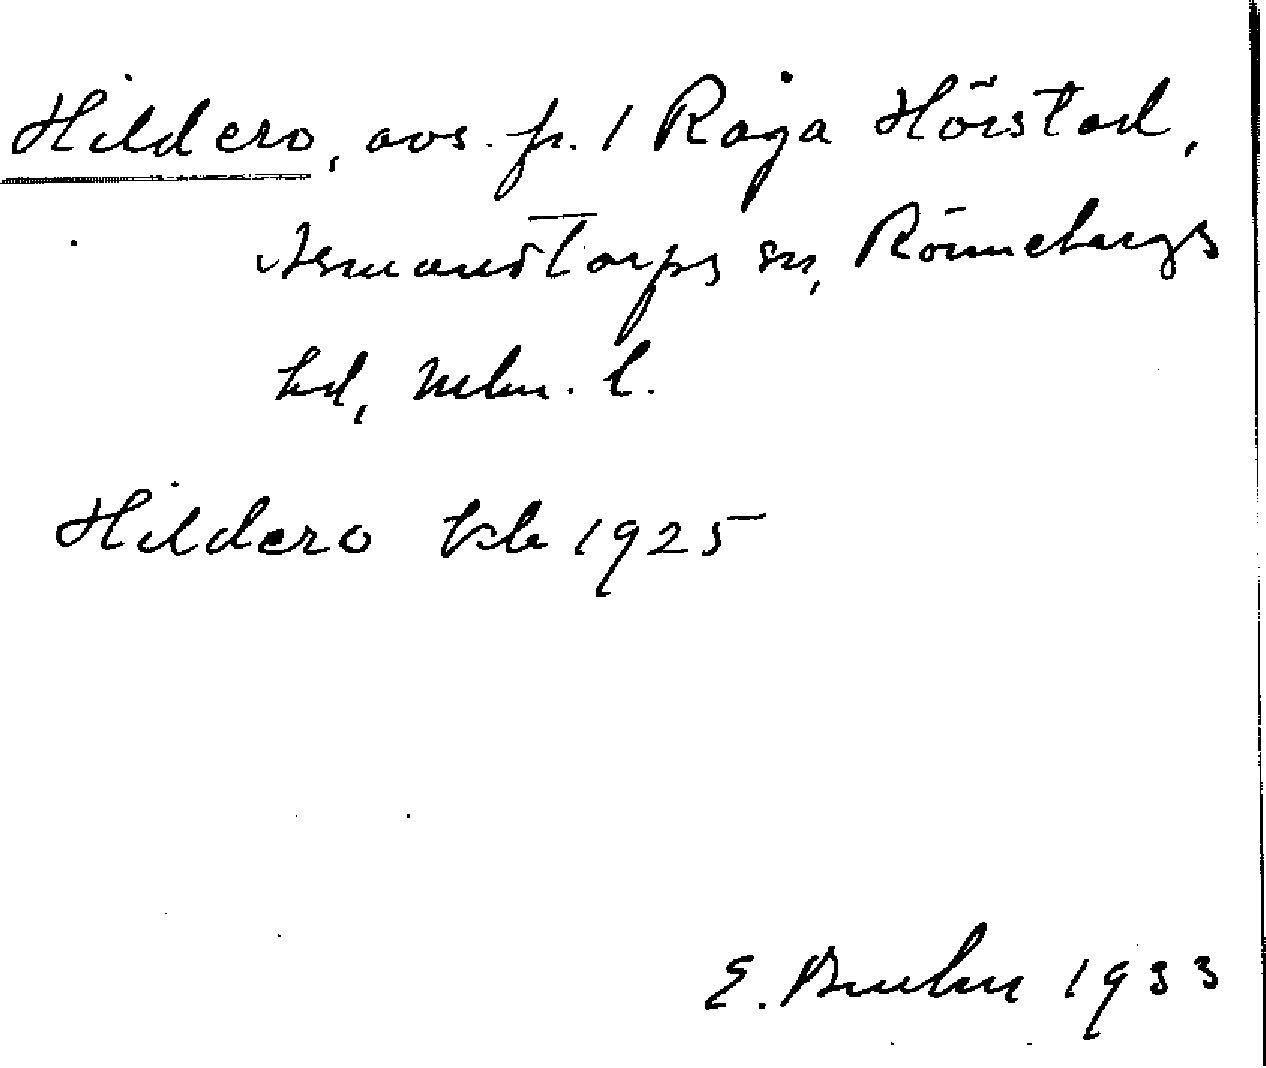 Hildero, avs. fr. 1 Råga Hörstad,
Asmundtorps sn, Rönnebergs
hd, Mlm. l.
Hildero kb 1925
E. Bruhn 1933